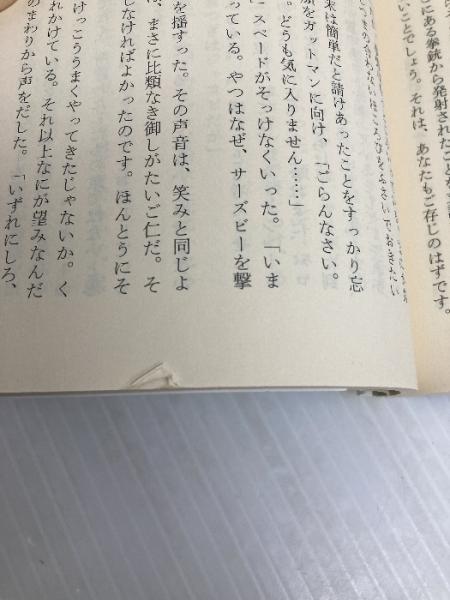 にある拳銃から発射されたことを
いことでしょう。それは、あなたもご存じのはずです。
来は簡単だと請けあったことをすっかり忘
顔をガットマンに向け、「ごらんなさい。
。どうも気に入りません……」
」スペードがそっけなくいった。「いま
っている。やつはなぜ、サーズビーを撃
を揺すった。その声音は、笑みと同じよ
、まさに比類なき御しがたいご仁だ。そ
しなければよかったのです。ほんとうにそ
けっこううまくやってきたじゃないか。く
れかけている。それ以上なにが望みなんだ
のまわりから声をだした。「いずれにしろ、